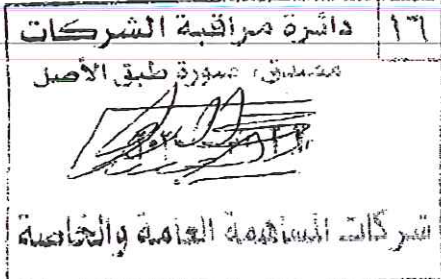 ١٦ دائرة مراقبة الشركات
مصدق، صورة طبق الأصل
شركات المساهمة العامة والخاصة